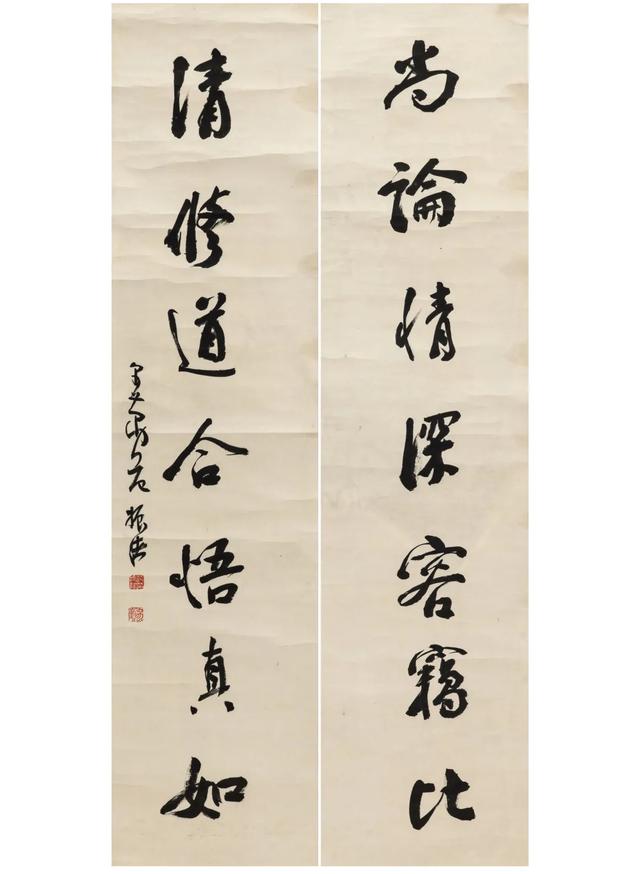 尚論情深容竊比
清修道合悟真如
振浩